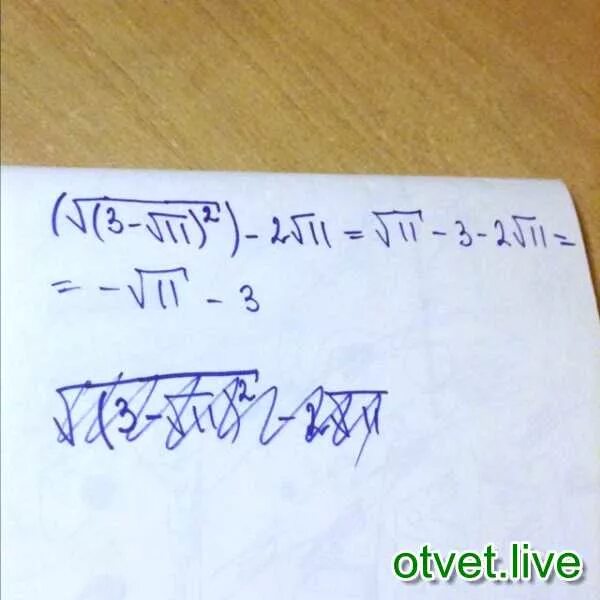 (√(3-√11)²)-2√11=√11-3-2√11=
=-√11-3
√(3-√11)²-2√11
otvet.live